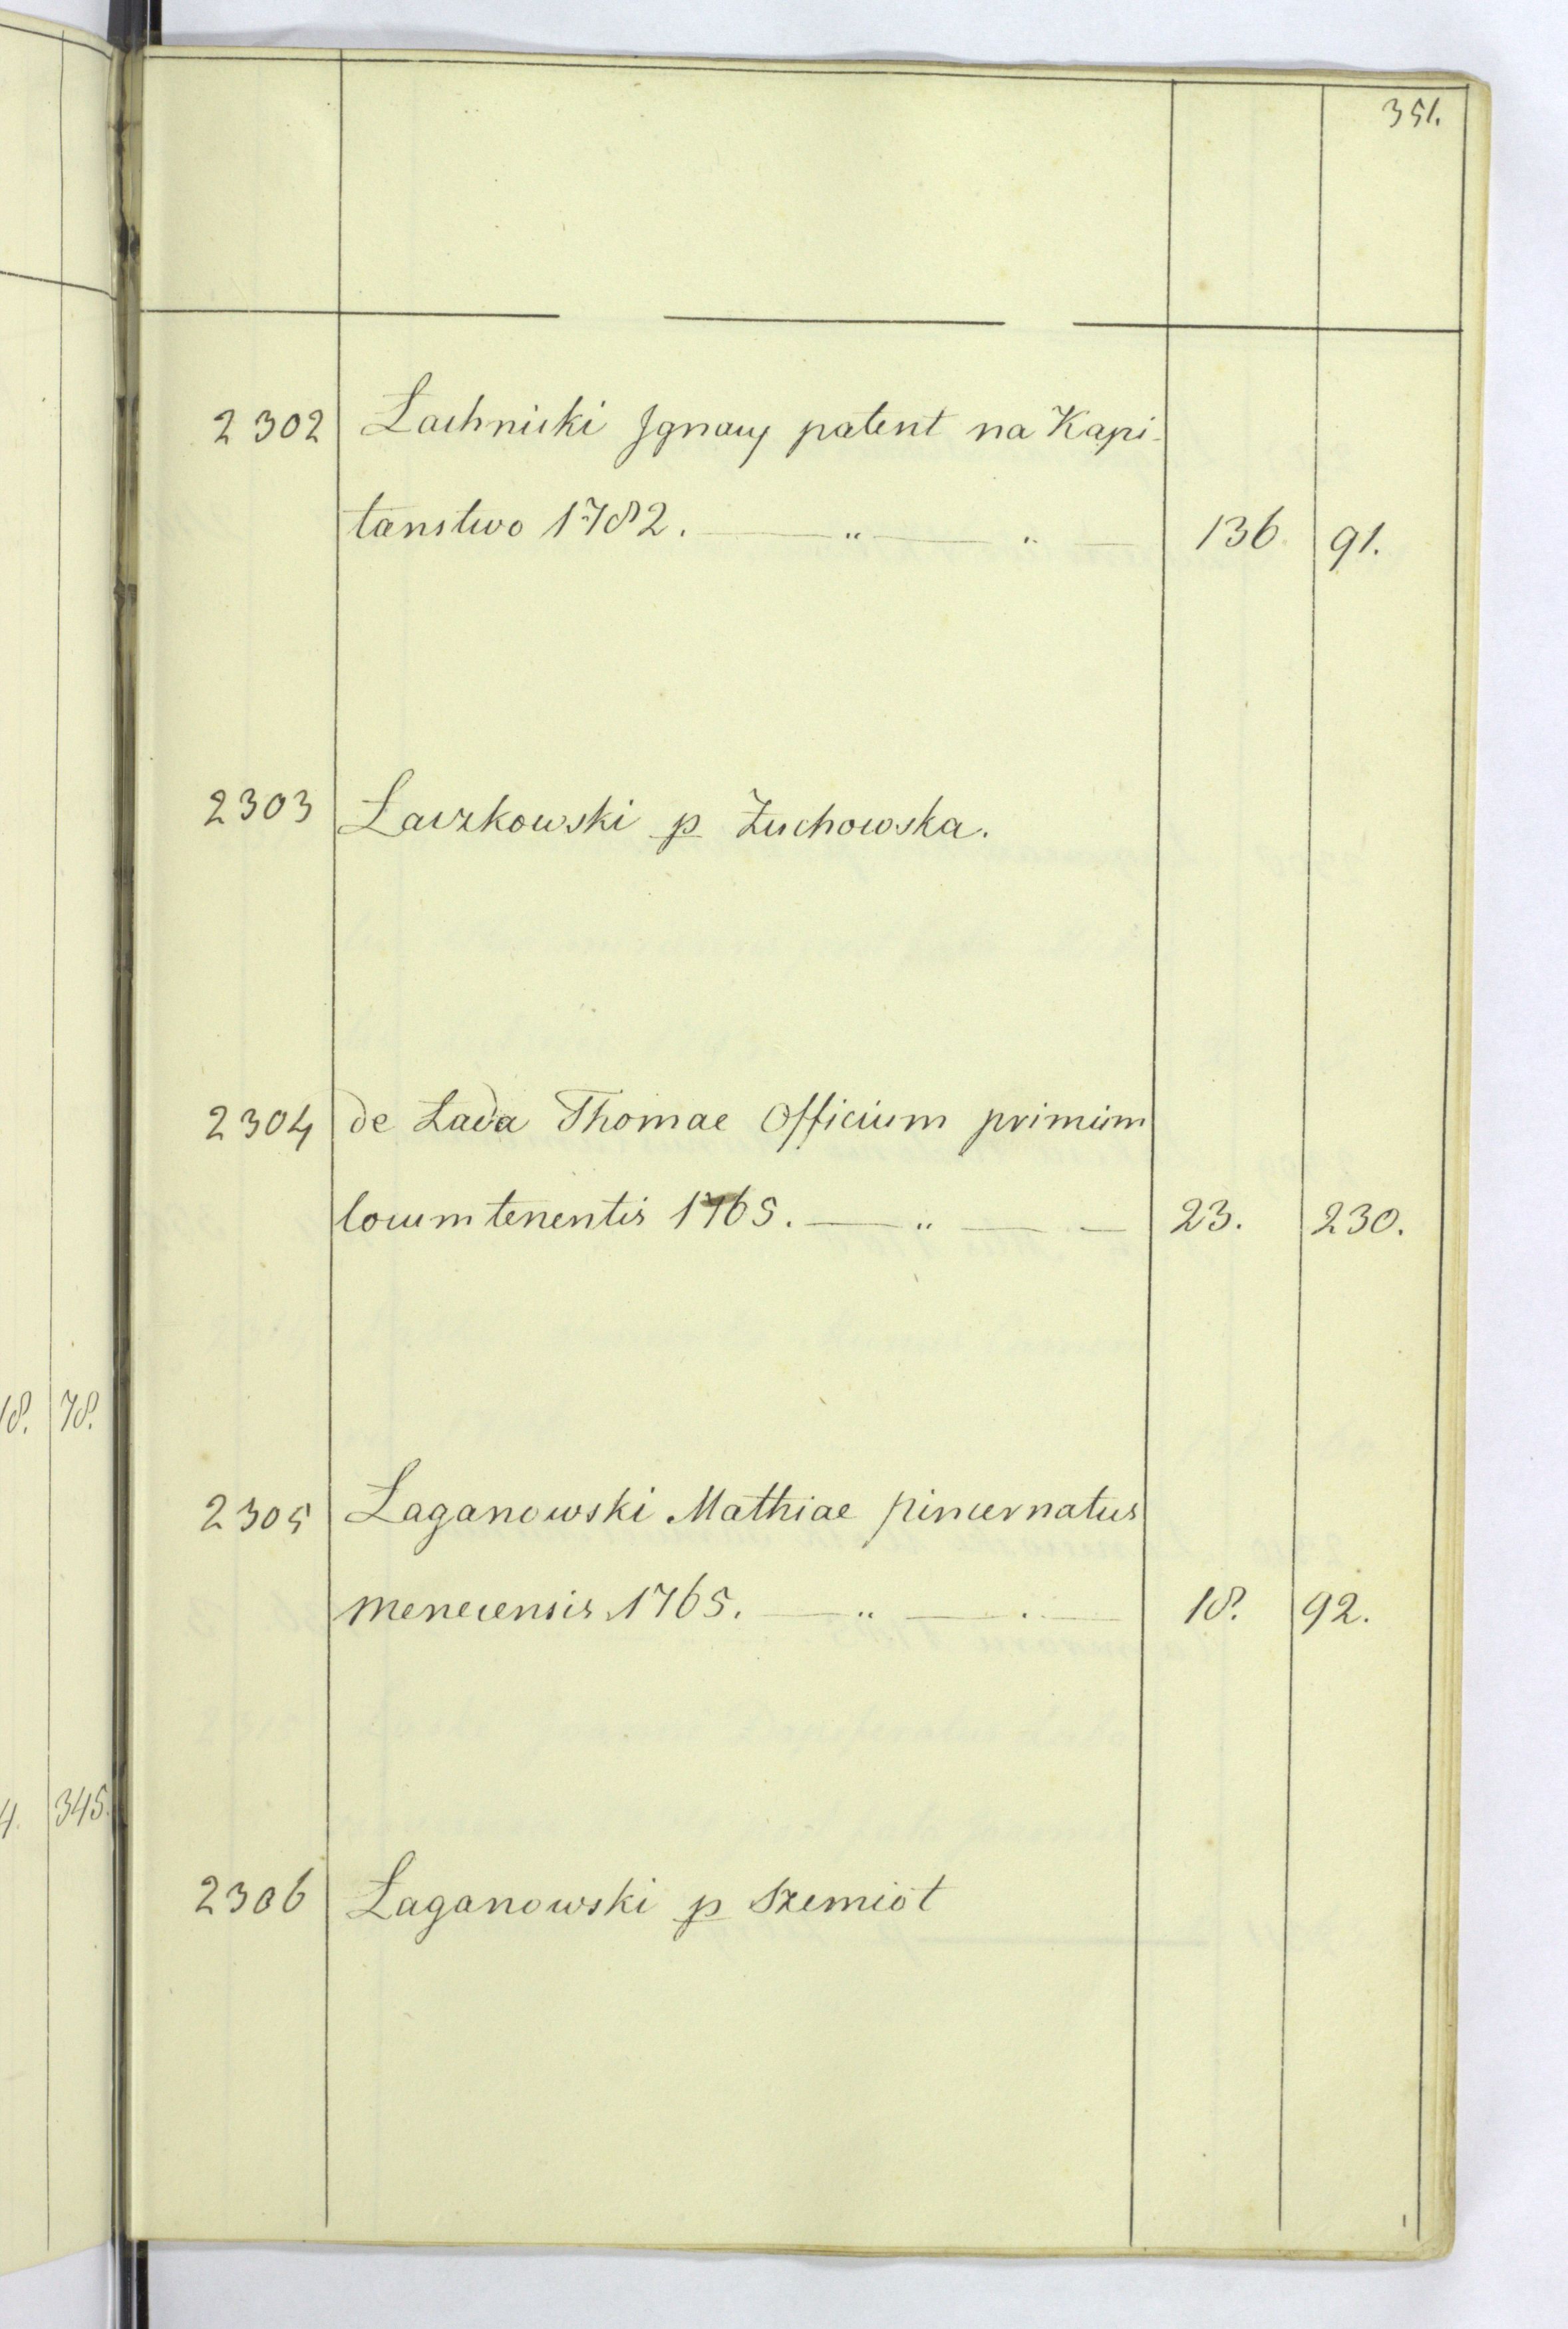 351.
2302 Łachnicki Jgnacy patent na Kapi-
tanstwo 1782. — „ — „ — 136. 91.
2303 Łaczkowski p Żuchowska.
2304 de Łada Thomae Officium primum
locumtenentis 1765. — „ — — 23. 230.
2305 Łaganowski Mathiae pincernatus
menecensis 1765. — „ — . — 18. 92.
2306 Łaganowski p Szemiot
18. 78.
4. 345.